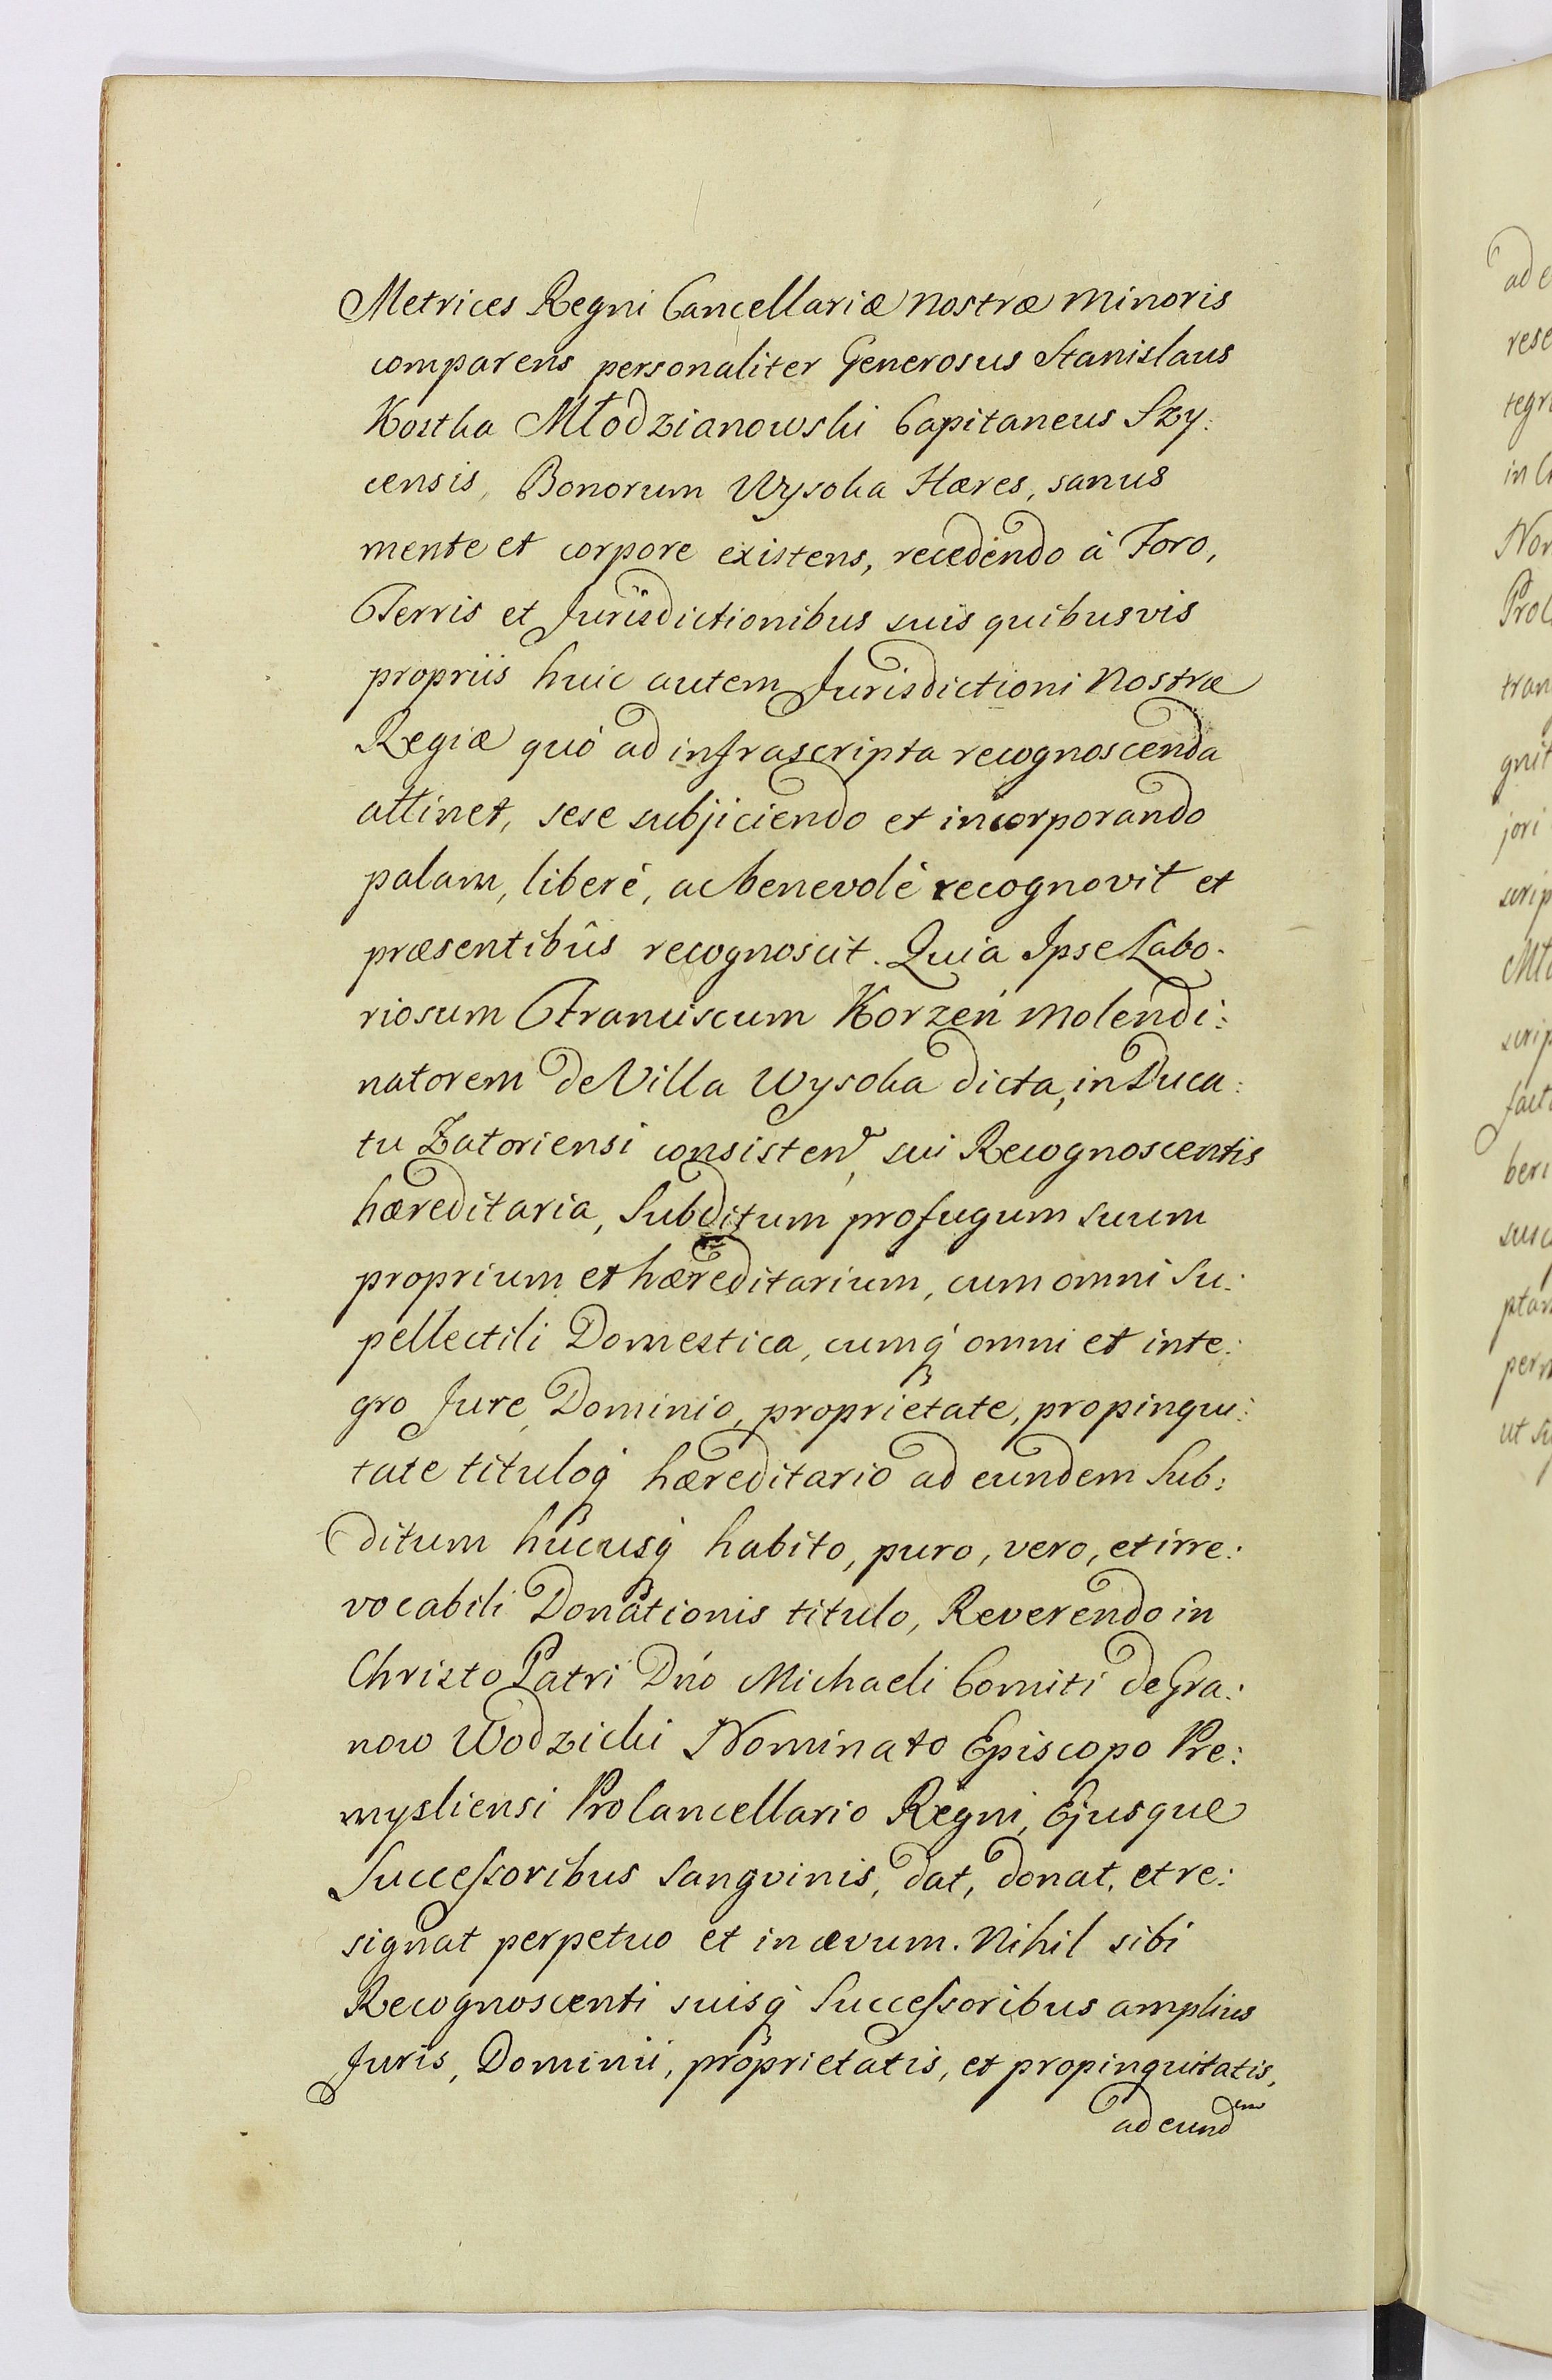 Metrices Regni Cancellariæ nostræ minoris
comparens personaliter Generosus Stanislaus
Kostka Młodzianowski Capitaneus Szy:
censis, Bonorum Wysoka Hæres, sanus
mente et corpore existens, recedendo à Foro,
Terris et Jurisdictionibus suis quibusvis
propriis huic autem Jurisdictioni nostræ
Regiæ quó ad infrascripta recognoscenda
attinet, sese subjiciendo et incorporando
palam, liberé, ac benevolé recognovit et
præsentibûs recognoscit. Quia Ipse Labo-
riosum Franciscum Korzeń molendi:
natorem de Villa Wysoka dicta, in Duca:
tu Zatoriensi consisten, sui Recognoscentis
hæreditaria, Subditum profugum suum
proprium et hæreditarium, cum omni Su:
pellectili Domestica, cumq́ omni et inte:
gro Jure, Dominio, proprietate, propinqui:
tate tituloq́ hæreditario ad eundem Sub:
ditum hucusq́ habito, puro, vero, et irre:
vocabili Donationis titulo, Reverendo in
Christo Patri Dńo Michaeli Comiti de Gra:
now Wodzicki Nominato Episcopo Pre:
mysliensi ProCancellario Regni, Ejusque
Succeſsoribus Sangvinis, dat, donat, et re:
signat perpetuo et in ævum. Nihil sibi
Recognoscenti suisq́ Succeſsoribus amplius
Juris, Dominii, proprietatis, et propinquitatis,
ad eundem